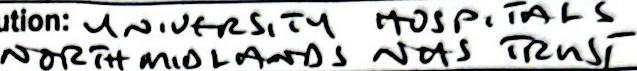 ution: UNIVERSITY HOSPITALS
NORTH MIDLANDS NHS TRUST